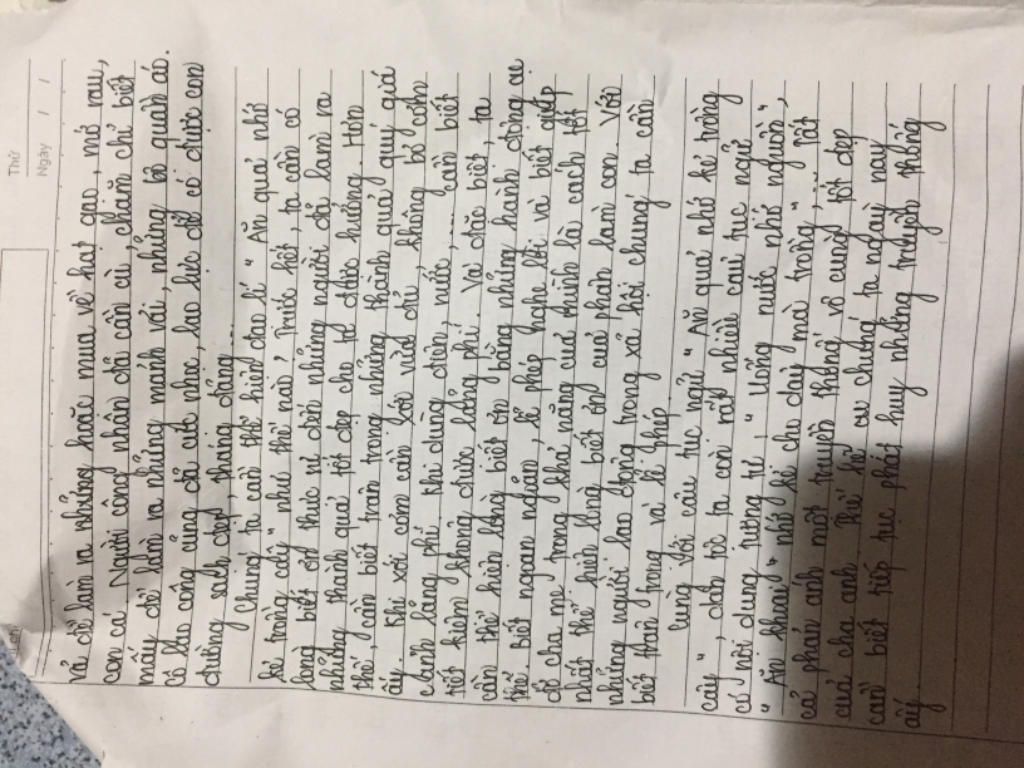 Thứ
Ngày / /
vả để làm ra những hoặc mua về hạt gạo, mớ rau,
con cá. Người công nhân đã cần cù, chăm chỉ biết
mấy để làm ra những mảnh vải, những bộ quần áo.
Cô lao công cũng đã cực nhọc, lao lực để có được con
đường sạch đẹp, thoáng đãng...
Chúng ta cần thể hiện đạo lí "Ăn quả nhớ
kẻ trồng cây" như thế nào? Trước hết, ta cần có
lòng biết ơn, thức về đến những người đã làm ra
những thành quả tốt đẹp cho ta được hưởng. Hơn
thế, cần biết trân trọng những thành quả quý giá
ấy. Khi xới cơm cần xới vừa đủ, không bỏ cơm
canh lãng phí. Khi dùng điện, nước,... cần biết
tiết kiệm không được lãng phí. Và đặc biệt, ta
cần thể hiện lòng biết ơn bằng những hành động cụ
thể. Biết ngoan ngoãn, lễ phép nghe lời và biết giúp
đỡ cha mẹ trong khả năng của mình là cách tốt
nhất thể hiện lòng biết ơn của phận làm con. Với
những người lao động trong xã hội chúng ta cần
biết trân trọng và lễ phép.
Cùng với câu tục ngữ "Ăn quả nhớ kẻ trồng
cây", dân tộc ta còn rất nhiều câu tục ngữ
có nội dung tương tự: "Uống nước nhớ nguồn",
"Ăn khoai nhớ kẻ cho dây mà trồng",... Tất
cả phản ánh một truyền thống vô cùng tốt đẹp
của cha anh. Thế hệ chúng ta ngày nay
cần biết tiếp tục phát huy những truyền thống
ấy.